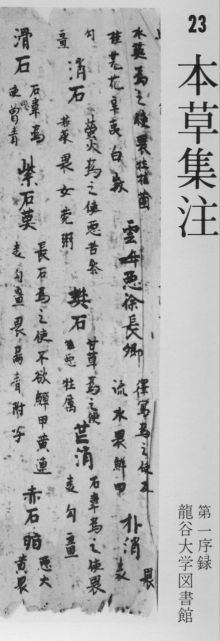 23
本草集注
第一序録
龍谷大学図書館
水英為之使畏牡桂菌
桂芫花辛夷白斂
雲母惡徐長卿
澤寫為之使反
流水畏鮮甲
朴消
畏
麦
勾
薑
消石
螢火為之使惡苦参
苦菜畏女菀粥
礬石
甘草為之使
惡牡厲
芒消
石韋為之使畏
麦勾薑
滑石
石韋為
使曾青
紫石英
長石為之使不欲鱓甲黄連
麦勾薑畏扁青附子
赤石脂
惡大
黄畏